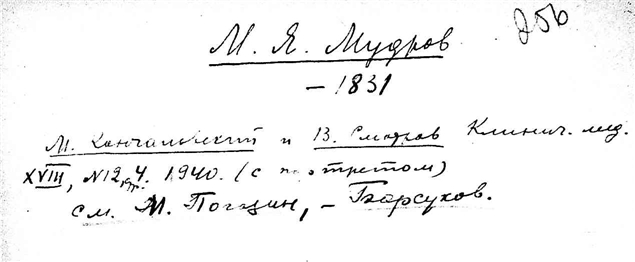 256
М. Я. Мудров
– 1831
М. Кончаловский и В. Смотров Клинич. мед.
XVIII, N12, стр. 4. 1940. (с портретом)
см. М. Погодин, – Барсуков.